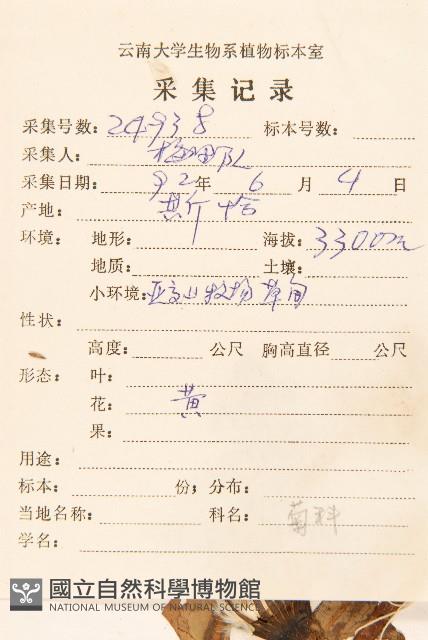 云南大学生物系植物标本室
采集记录
采集号数: 24938 标本号数:
采集人: 队
采集日期: 92年 6 月 4 日
产地:
环境: 地形: 海拔: 3300m
地质: 土壤:
小环境: 亚高山牧场草甸
性状:
高度: 公尺 胸高直径 公尺
形态: 叶:
花: 黄
果:
用途:
标本: 份; 分布:
当地名称: 科名: 菊科
学名:
國立自然科學博物館
NATIONAL MUSEUM OF NATURAL SCIENCE